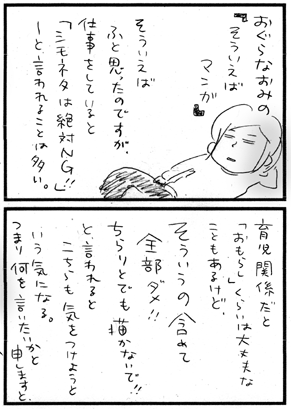 おぐらなおみの
そういえば
マンガ
そういえば
ふと思ったのですが、
仕事をしていると
「シモネタは絶対NG!!」
ーと、言われることは多い。
育児関係だと
「おもらし」くらいは大丈夫な
こともあるけど、
そういうの含めて
全部ダメ!!
ちらりとでも描かないで!!
と、言われると
こちらも気をつけようと
いう気になる。
つまり何を言いたいかと
申しますと、